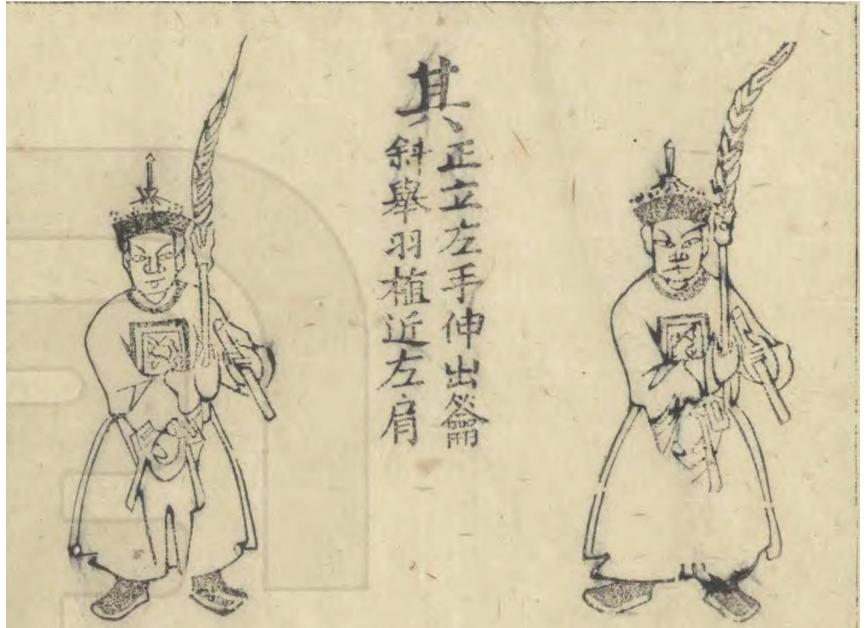 其
正立左手伸出籥
斜舉羽植近左肩